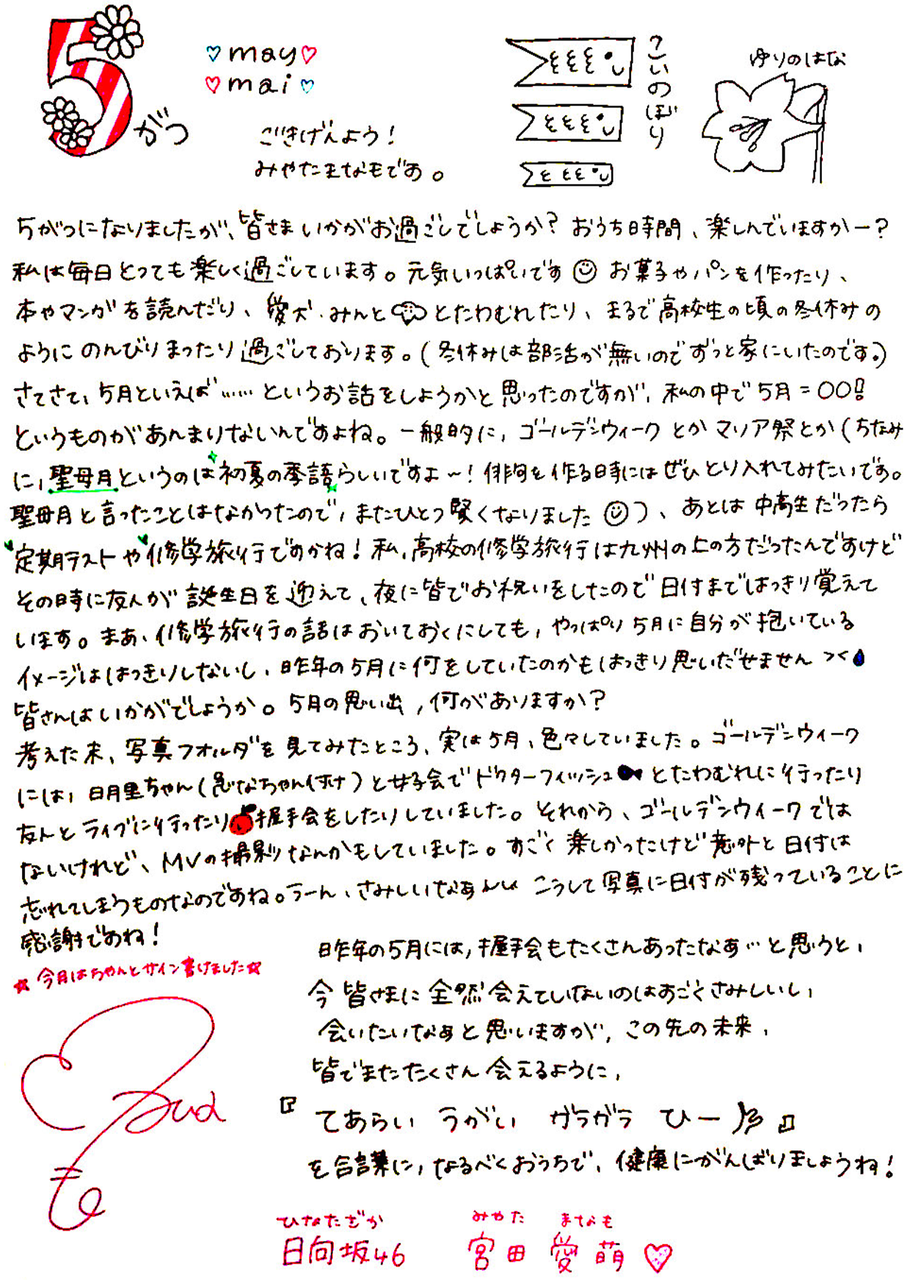 5がつ
♡may♡
♡mai♡
こいのぼり
ゆりのはな
ごきげんよう！
みやたまなもです。
5がつになりましたが、皆さまいかがお過ごしでしょうか？おうち時間、楽しんでいますかー？
私は毎日とっても楽しく過ごしています。元気いっぱいです☺お菓子やパンを作ったり、
本やマンガを読んだり、愛犬・みんととたわむれたり、まるで高校生の頃の冬休みの
ようにのんびりまったり過ごしております。(冬休みは部活が無いのでずっと家にいたのです。)
さてさて、5月といえば……というお話をしようかと思ったのですが、私の中で5月=〇〇!!
というものがあんまりないんですよね。一般的に、ゴールデンウィークとかマリア祭とか(ちなみ
に、聖母月というのは初夏の季語らしいですよ〜！俳句を作る時にはぜひとり入れてみたいです。
聖母月と言ったことはなかったので、またひとつ賢くなりました☺)、あとは中高生だったら
定期テストや修学旅行ですかね！私、高校の修学旅行は九州の上の方だったんですけど
その時に友人が誕生日を迎えて、夜に皆でお祝いをしたので日付まではっきり覚えて
います。まあ、修学旅行の話はおいておくにしても、やっぱり5月に自分が抱いている
イメージははっきりしないし、昨年の5月に何をしていたのかもはっきり思いだせません><
皆さんはいかがでしょうか。5月の思い出、何がありますか？
考えた末、写真フォルダを見てみたところ、実は5月、色々していました。ゴールデンウィーク
には、日月里ちゃん(ちゃん付け)と女子会でドクターフィッシュとたわむれに行ったり
友人とライブに行ったり握手会をしたりしていました。それから、ゴールデンウィークでは
ないけれど、MVの撮影なんかもしていました。すごく楽しかったけど意外と日付は
忘れてしまうものなのですね。うーん、さみしいなぁ こうして写真に日付が残っていることに
感謝ですね！
☆今月はちゃんとサイン書けました☆
昨年の5月には、握手会もたくさんあったなぁ…と思うと、
今皆さまに全然会えていないのはすごくさみしいし、
会いたいなぁと思いますが、この先の未来、
皆でまたたくさん会えるように、
『てあらい うがい ガラガラ ひー♪』
を合言葉に、なるべくおうちで、健康にがんばりましょうね！
ひなたざか みやた まなも
日向坂46 宮田 愛萌♡